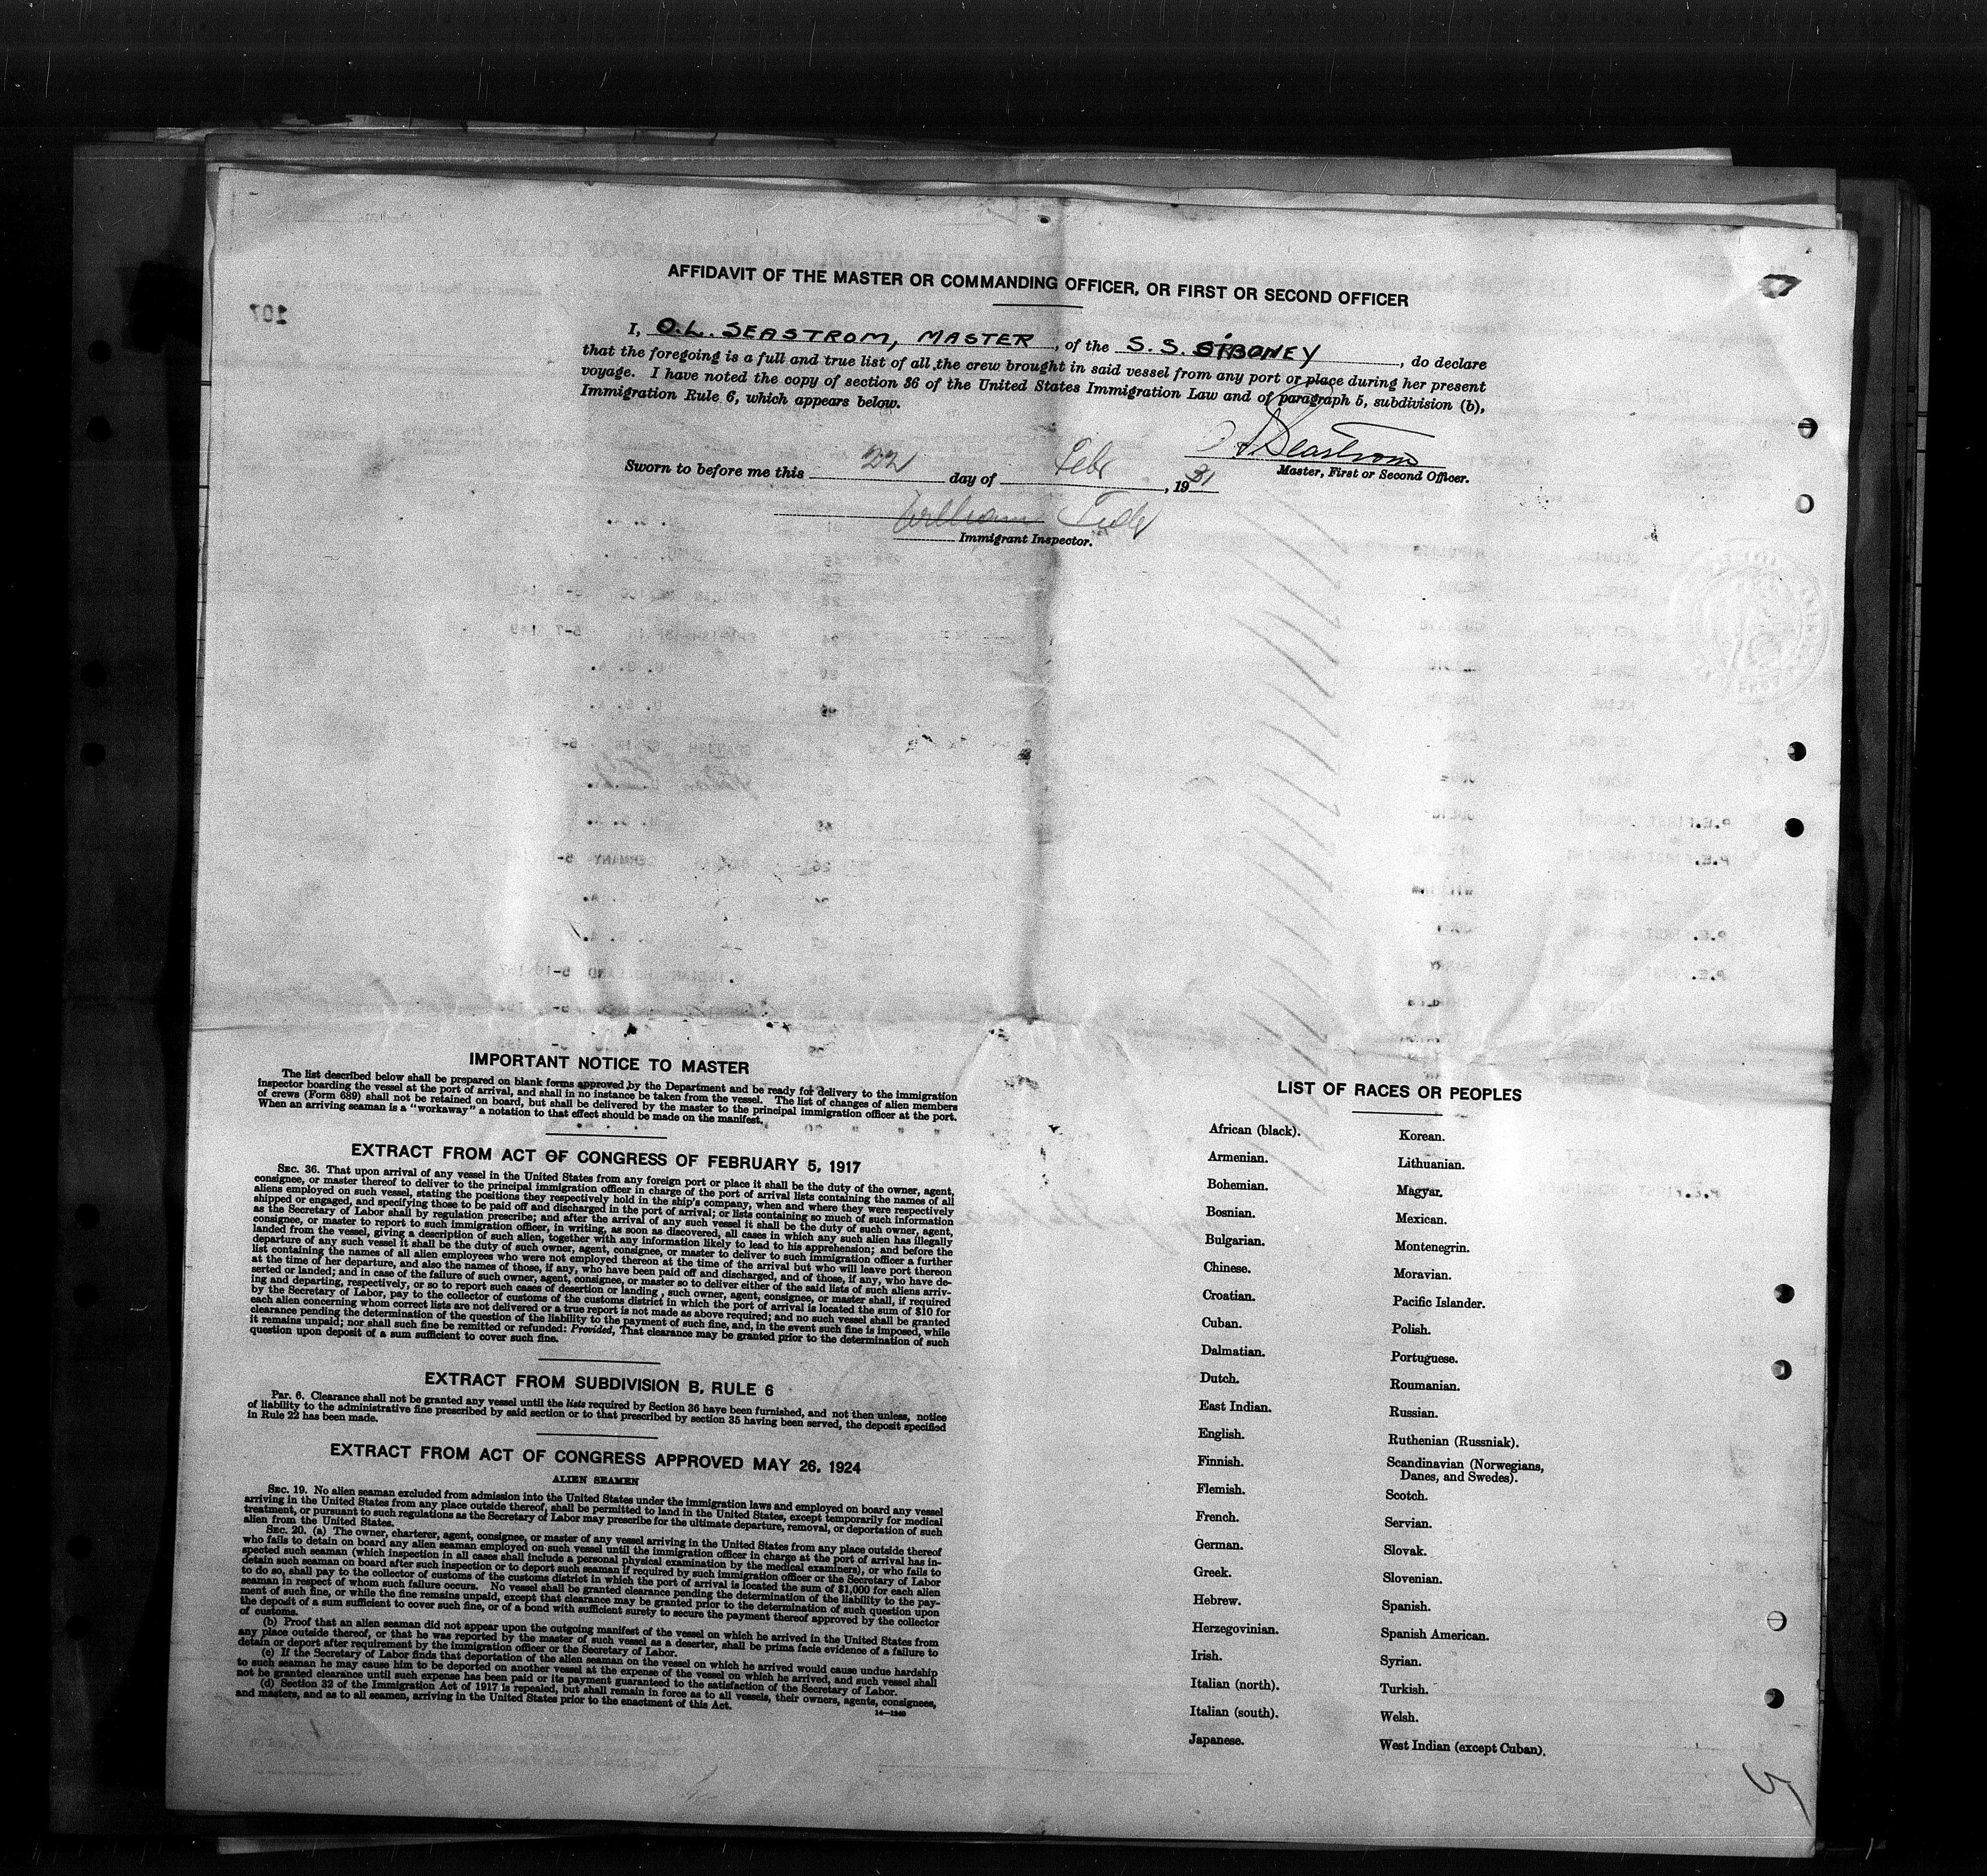 AFFIDAVIT OF THE MASTER OR COMMANDING OFFICER, OR FIRST OR SECOND OFFICER
I, O.L. SEASTROM, MASTER, of the S. S. SIBONEY, do declare
that the foregoing is a full and true list of all the crew brought in said vessel from any port or place during her present
voyage. I have noted the copy of section 36 of the United States Immigration Law and of paragraph 5, subdivision (b),
Immigration Rule 6, which appears below.
O L Seastrom
Master, First or Second Officer.
Sworn to before me this 22 day of Feby, 1931
William
Immigrant Inspector.
207
IMPORTANT NOTICE TO MASTER
The list described below shall be prepared on blank forms approved by the Department and be ready for delivery to the immigration
inspector boarding the vessel at the port of arrival, and shall in no instance be taken from the vessel. The list of changes of alien members
of crews (Form 689) shall not be retained on board, but shall be delivered by the master to the principal immigration officer at the port.
When an arriving seaman is a "workaway" a notation to that effect should be made on the manifest.
EXTRACT FROM ACT OF CONGRESS OF FEBRUARY 5, 1917
SEC. 36. That upon arrival of any vessel in the United States from any foreign port or place it shall be the duty of the owner, agent,
consignee, or master thereof to deliver to the principal immigration officer in charge of the port of arrival lists containing the names of all
aliens employed on such vessel, stating the positions they respectively hold in the ship's company, when and where they were respectively
shipped or engaged, and specifying those to be paid off and discharged in the port of arrival; or lists containing so much of such information
as the Secretary of Labor shall by regulation prescribe; and after the arrival of any such vessel it shall be the duty of such owner, agent,
consignee, or master to report to such immigration officer, in writing, as soon as discovered, all cases in which any such alien has illegally
landed from the vessel, giving a description of such alien, together with any information likely to lead to his apprehension; and before the
departure of any such vessel it shall be the duty of such owner, agent, consignee, or master to deliver to such immigration officer a further
list containing the names of all alien employees who were not employed thereon at the time of the arrival but who will leave port thereon
at the time of her departure, and also the names of those, if any, who have been paid off and discharged, and of those, if any, who have de-
serted or landed; and in case of the failure of such owner, agent, consignee, or master so to deliver either of the said lists of such aliens arriv-
ing and departing, respectively, or so to report such cases of desertion or landing, such owner, agent, consignee, or master shall, if required
by the Secretary of Labor, pay to the collector of customs of the customs district in which the port of arrival is located the sum of $10 for
each alien concerning whom correct lists are not delivered or a true report is not made as above required; and no such vessel shall be granted
clearance pending the determination of the question of the liability to the payment of such fine, and, in the event such fine is imposed, while
it remains unpaid; nor shall such fine be remitted or refunded: Provided, That clearance may be granted prior to the determination of such
question upon deposit of a sum sufficient to cover such fine.
EXTRACT FROM SUBDIVISION B, RULE 6
Par. 6. Clearance shall not be granted any vessel until the lists required by Section 36 have been furnished, and not then unless, notice
of liability to the administrative fine prescribed by said section or to that prescribed by section 35 having been served, the deposit specified
in Rule 22 has been made.
EXTRACT FROM ACT OF CONGRESS APPROVED MAY 26, 1924
ALIEN SEAMEN
SEC. 19. No alien seaman excluded from admission into the United States under the immigration laws and employed on board any vessel
arriving in the United States from any place outside thereof, shall be permitted to land in the United States, except temporarily for medical
treatment, or pursuant to such regulations as the Secretary of Labor may prescribe for the ultimate departure, removal, or deportation of such
alien from the United States.
SEC. 20. (a) The owner, charterer, agent, consignee, or master of any vessel arriving in the United States from any place outside thereof
who fails to detain on board any alien seaman employed on such vessel until the immigration officer in charge at the port of arrival has in-
spected such seaman (which inspection in all cases shall include a personal physical examination by the medical examiners), or who fails to
detain such seaman on board after such inspection or to deport such seaman if required by such immigration officer or the Secretary of Labor
to do so, shall pay to the collector of customs of the customs district in which the port of arrival is located the sum of $1,000 for each alien
seaman in respect of whom such failure occurs. No vessel shall be granted clearance pending the determination of the liability to the pay-
ment of such fine, or while the fine remains unpaid, except that clearance may be granted prior to the determination of such question upon
the deposit of a sum sufficient to cover such fine, or of a bond with sufficient surety to secure the payment thereof approved by the collector
of customs.
(b) Proof that an alien seaman did not appear upon the outgoing manifest of the vessel on which he arrived in the United States from
any place outside thereof, or that he was reported by the master of such vessel as a deserter, shall be prima facie evidence of a failure to
detain or deport after requirement by the immigration officer or the Secretary of Labor.
(c) If the Secretary of Labor finds that deportation of the alien seaman on the vessel on which he arrived would cause undue hardship
to such seaman he may cause him to be deported on another vessel at the expense of the vessel on which he arrived, and such vessel shall
not be granted clearance until such expense has been paid or its payment guaranteed to the satisfaction of the Secretary of Labor.
(d) Section 32 of the Immigration Act of 1917 is repealed, but shall remain in force as to all vessels, their owners, agents, consignees,
and masters, and as to all seamen, arriving in the United States prior to the enactment of this Act.
14—1240
LIST OF RACES OR PEOPLES
African (black).
Armenian.
Bohemian.
Bosnian.
Bulgarian.
Chinese.
Croatian.
Cuban.
Dalmatian.
Dutch.
East Indian.
English.
Finnish.
Flemish.
French.
German.
Greek.
Hebrew.
Herzegovinian.
Irish.
Italian (north).
Italian (south).
Japanese.
Korean.
Lithuanian.
Magyar.
Mexican.
Montenegrin.
Moravian.
Pacific Islander.
Polish.
Portuguese.
Roumanian.
Russian.
Ruthenian (Russniak).
Scandinavian (Norwegians,
Danes, and Swedes).
Scotch.
Servian.
Slovak.
Slovenian.
Spanish.
Spanish American.
Syrian.
Turkish.
Welsh.
West Indian (except Cuban).
5